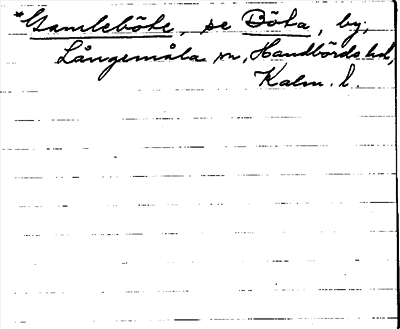 *Gamleböke, se Böta, by,
Långemåla sn, Handbörds hd,
Kalm. l.